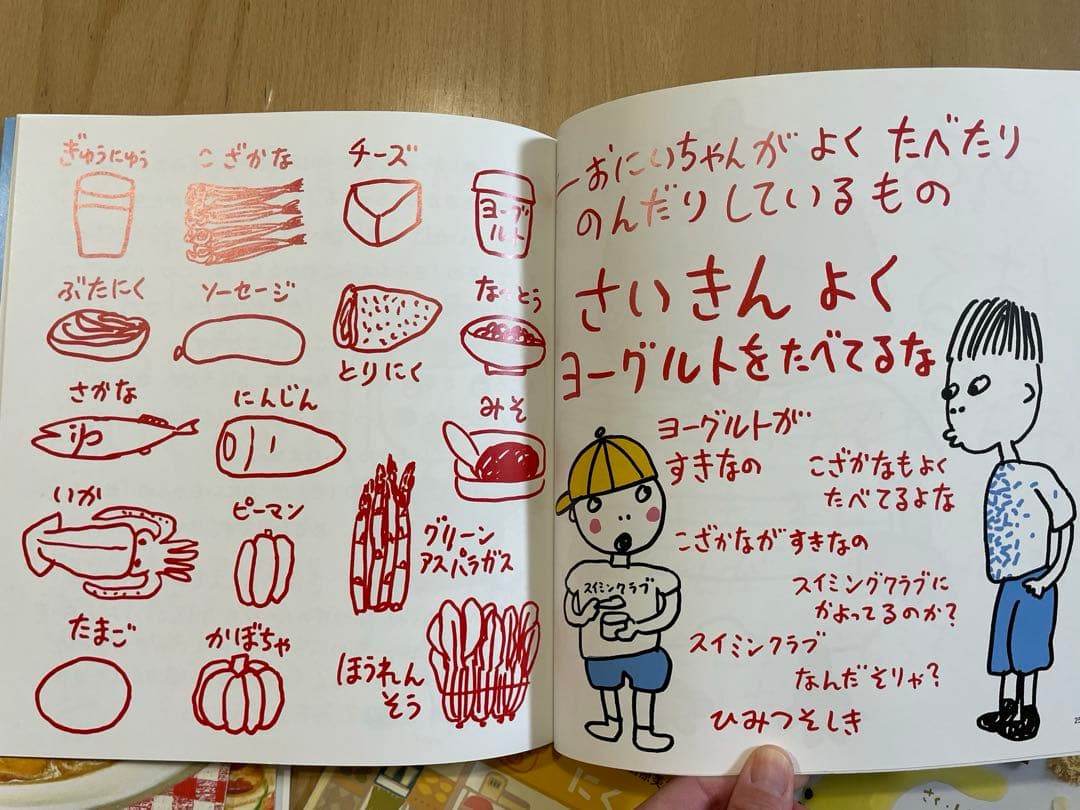 ぎゅうにゅう
こざかな
チーズ
ヨーグ
ルト
ぶたにく
ソーセージ
とりにく
なっとう
さかな
にんじん
みそ
いか
ピーマン
グリーン
アスパラガス
たまご
かぼちゃ
ほうれん
そう
おにいちゃんが よく たべたり
のんだりしているもの
さいきん よく
ヨーグルトをたべてるな
ヨーグルトが
すきなの
こざかなもよく
たべてるよな
こざかながすきなの
スイミングクラブに
かよってるのか?
スイミンクラブ
なんだそりゃ?
ひみつそしき
スイミンクラブ